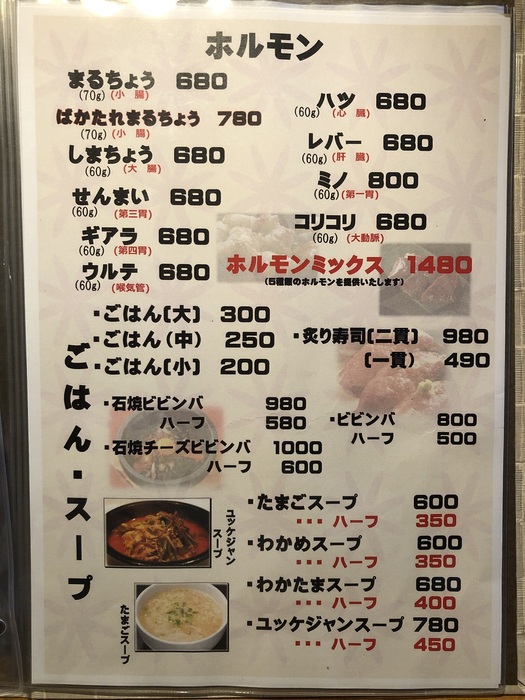 ホルモン
まるちょう 680
(70g) (小 腸)
ばかたれまるちょう 780
(70g) (小 腸)
しまちょう 680
(60g) (大 腸)
せんまい 680
(60g) (第三胃)
ギアラ 680
(60g) (第四胃)
ウルテ 680
(60g) (喉気管)
ハツ 680
(60g) (心 臓)
レバー 680
(60g) (肝 臓)
ミノ 800
(60g) (第一胃)
コリコリ 680
(60g) (大動脈)
ホルモンミックス 1480
(5種類のホルモンを提供いたします)
ごはん・スープ
・ごはん(大) 300
・ごはん(中) 250
・ごはん(小) 200
・炙り寿司(二貫) 980
(一貫) 490
・石焼ビビンバ 980
ハーフ 580
・石焼チーズビビンバ 1000
ハーフ 600
・ビビンバ 800
ハーフ 500
・たまごスープ 600
・・・ ハーフ 350
・わかめスープ 600
・・・ ハーフ 350
・わかたまスープ 680
・・・ ハーフ 400
・ユッケジャンスープ 780
・・・ ハーフ 450
ユッケジャン
スープ
たまごスープ